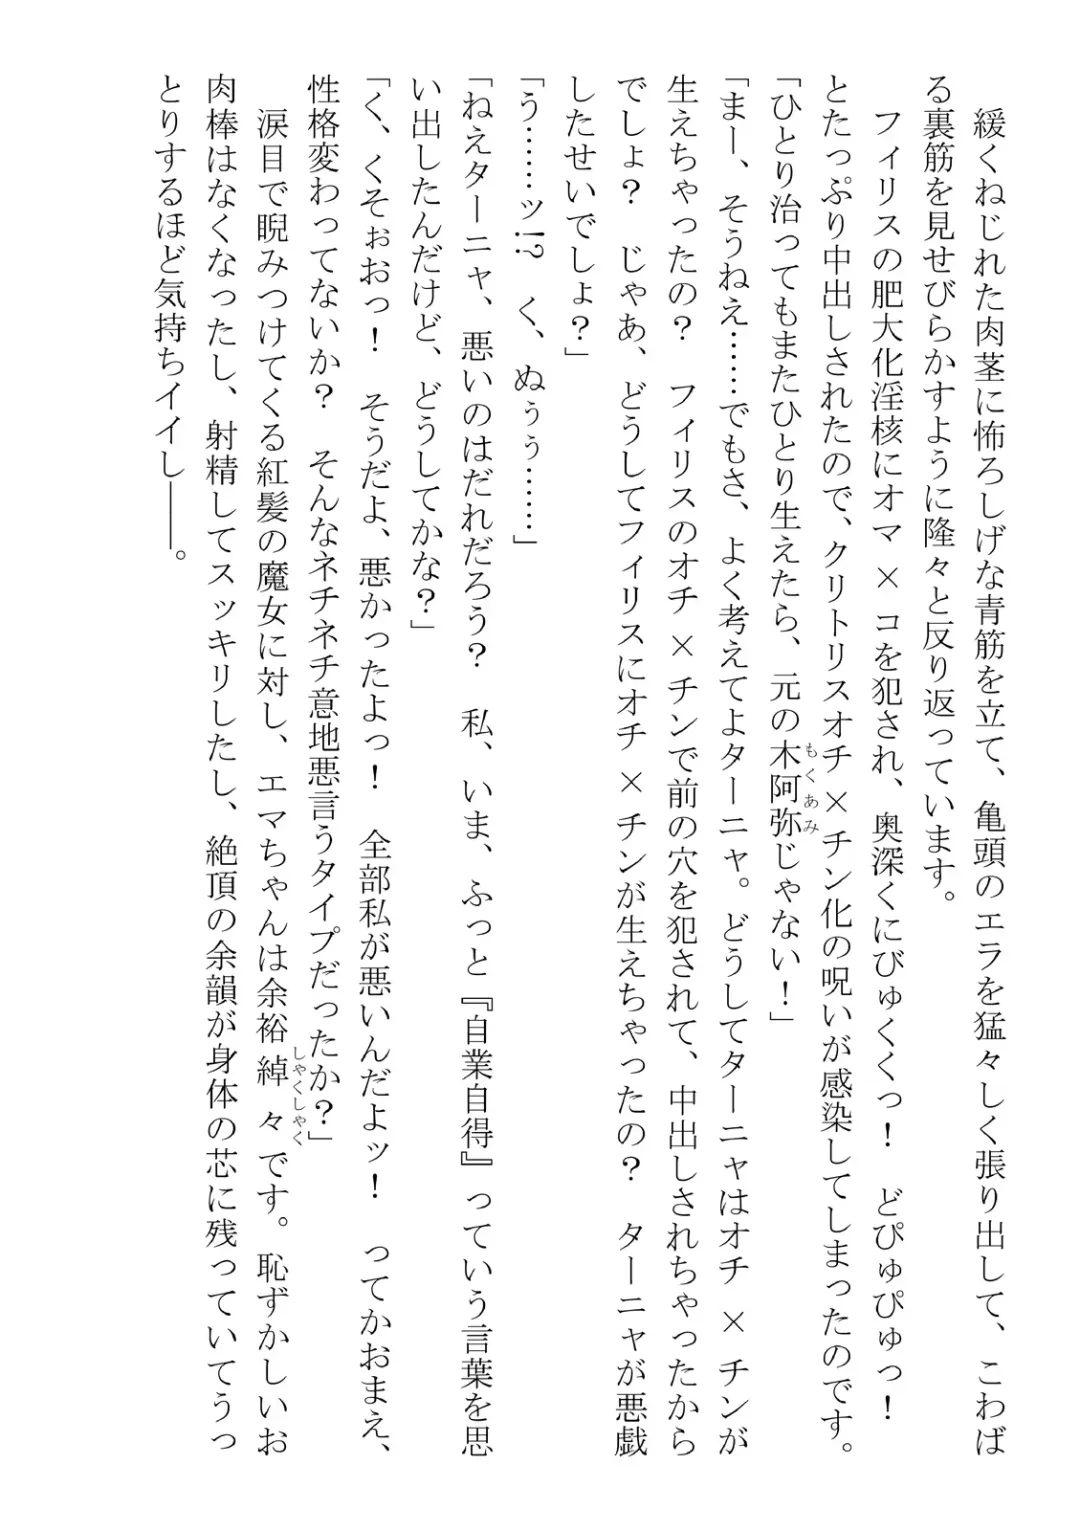 緩くねじれた肉茎に怖ろしげな青筋を立て、亀頭のエラを猛々しく張り出して、こわば
る裏筋を見せびらかすように隆々と反り返っています。
　フィリスの肥大化淫核にオマ×コを犯され、奥深くにびゅくくっ！　どぴゅぴゅっ！
とたっぷり中出しされたので、クリトリスオチ×チン化の呪いが感染してしまったのです。
「ひとり治ってもまたひとり生えたら、元の木阿弥じゃない！」
「まー、そうねえ……でもさ、よく考えてよターニャ。どうしてターニャはオチ×チンが
生えちゃったの？　フィリスのオチ×チンで前の穴を犯されて、中出しされちゃったから
でしょ？　じゃあ、どうしてフィリスにオチ×チンが生えちゃったの？　ターニャが悪戯
したせいでしょ？」
「う……ッ!?　く、ぬぅぅ……」
「ねえターニャ、悪いのはだれだろう？　私、いま、ふっと『自業自得』っていう言葉を思
い出したんだけど、どうしてかな？」
「く、くそぉおっ！　そうだよ、悪かったよっ！　全部私が悪いんだよッ！　ってかおまえ、
性格変わってないか？　そんなネチネチ意地悪言うタイプだったか？」
　涙目で睨みつけてくる紅髪の魔女に対し、エマちゃんは余裕綽々です。恥ずかしいお
肉棒はなくなったし、射精してスッキリしたし、絶頂の余韻が身体の芯に残っていてうっ
とりするほど気持ちイイし――。
もくあみ
しゃくしゃく